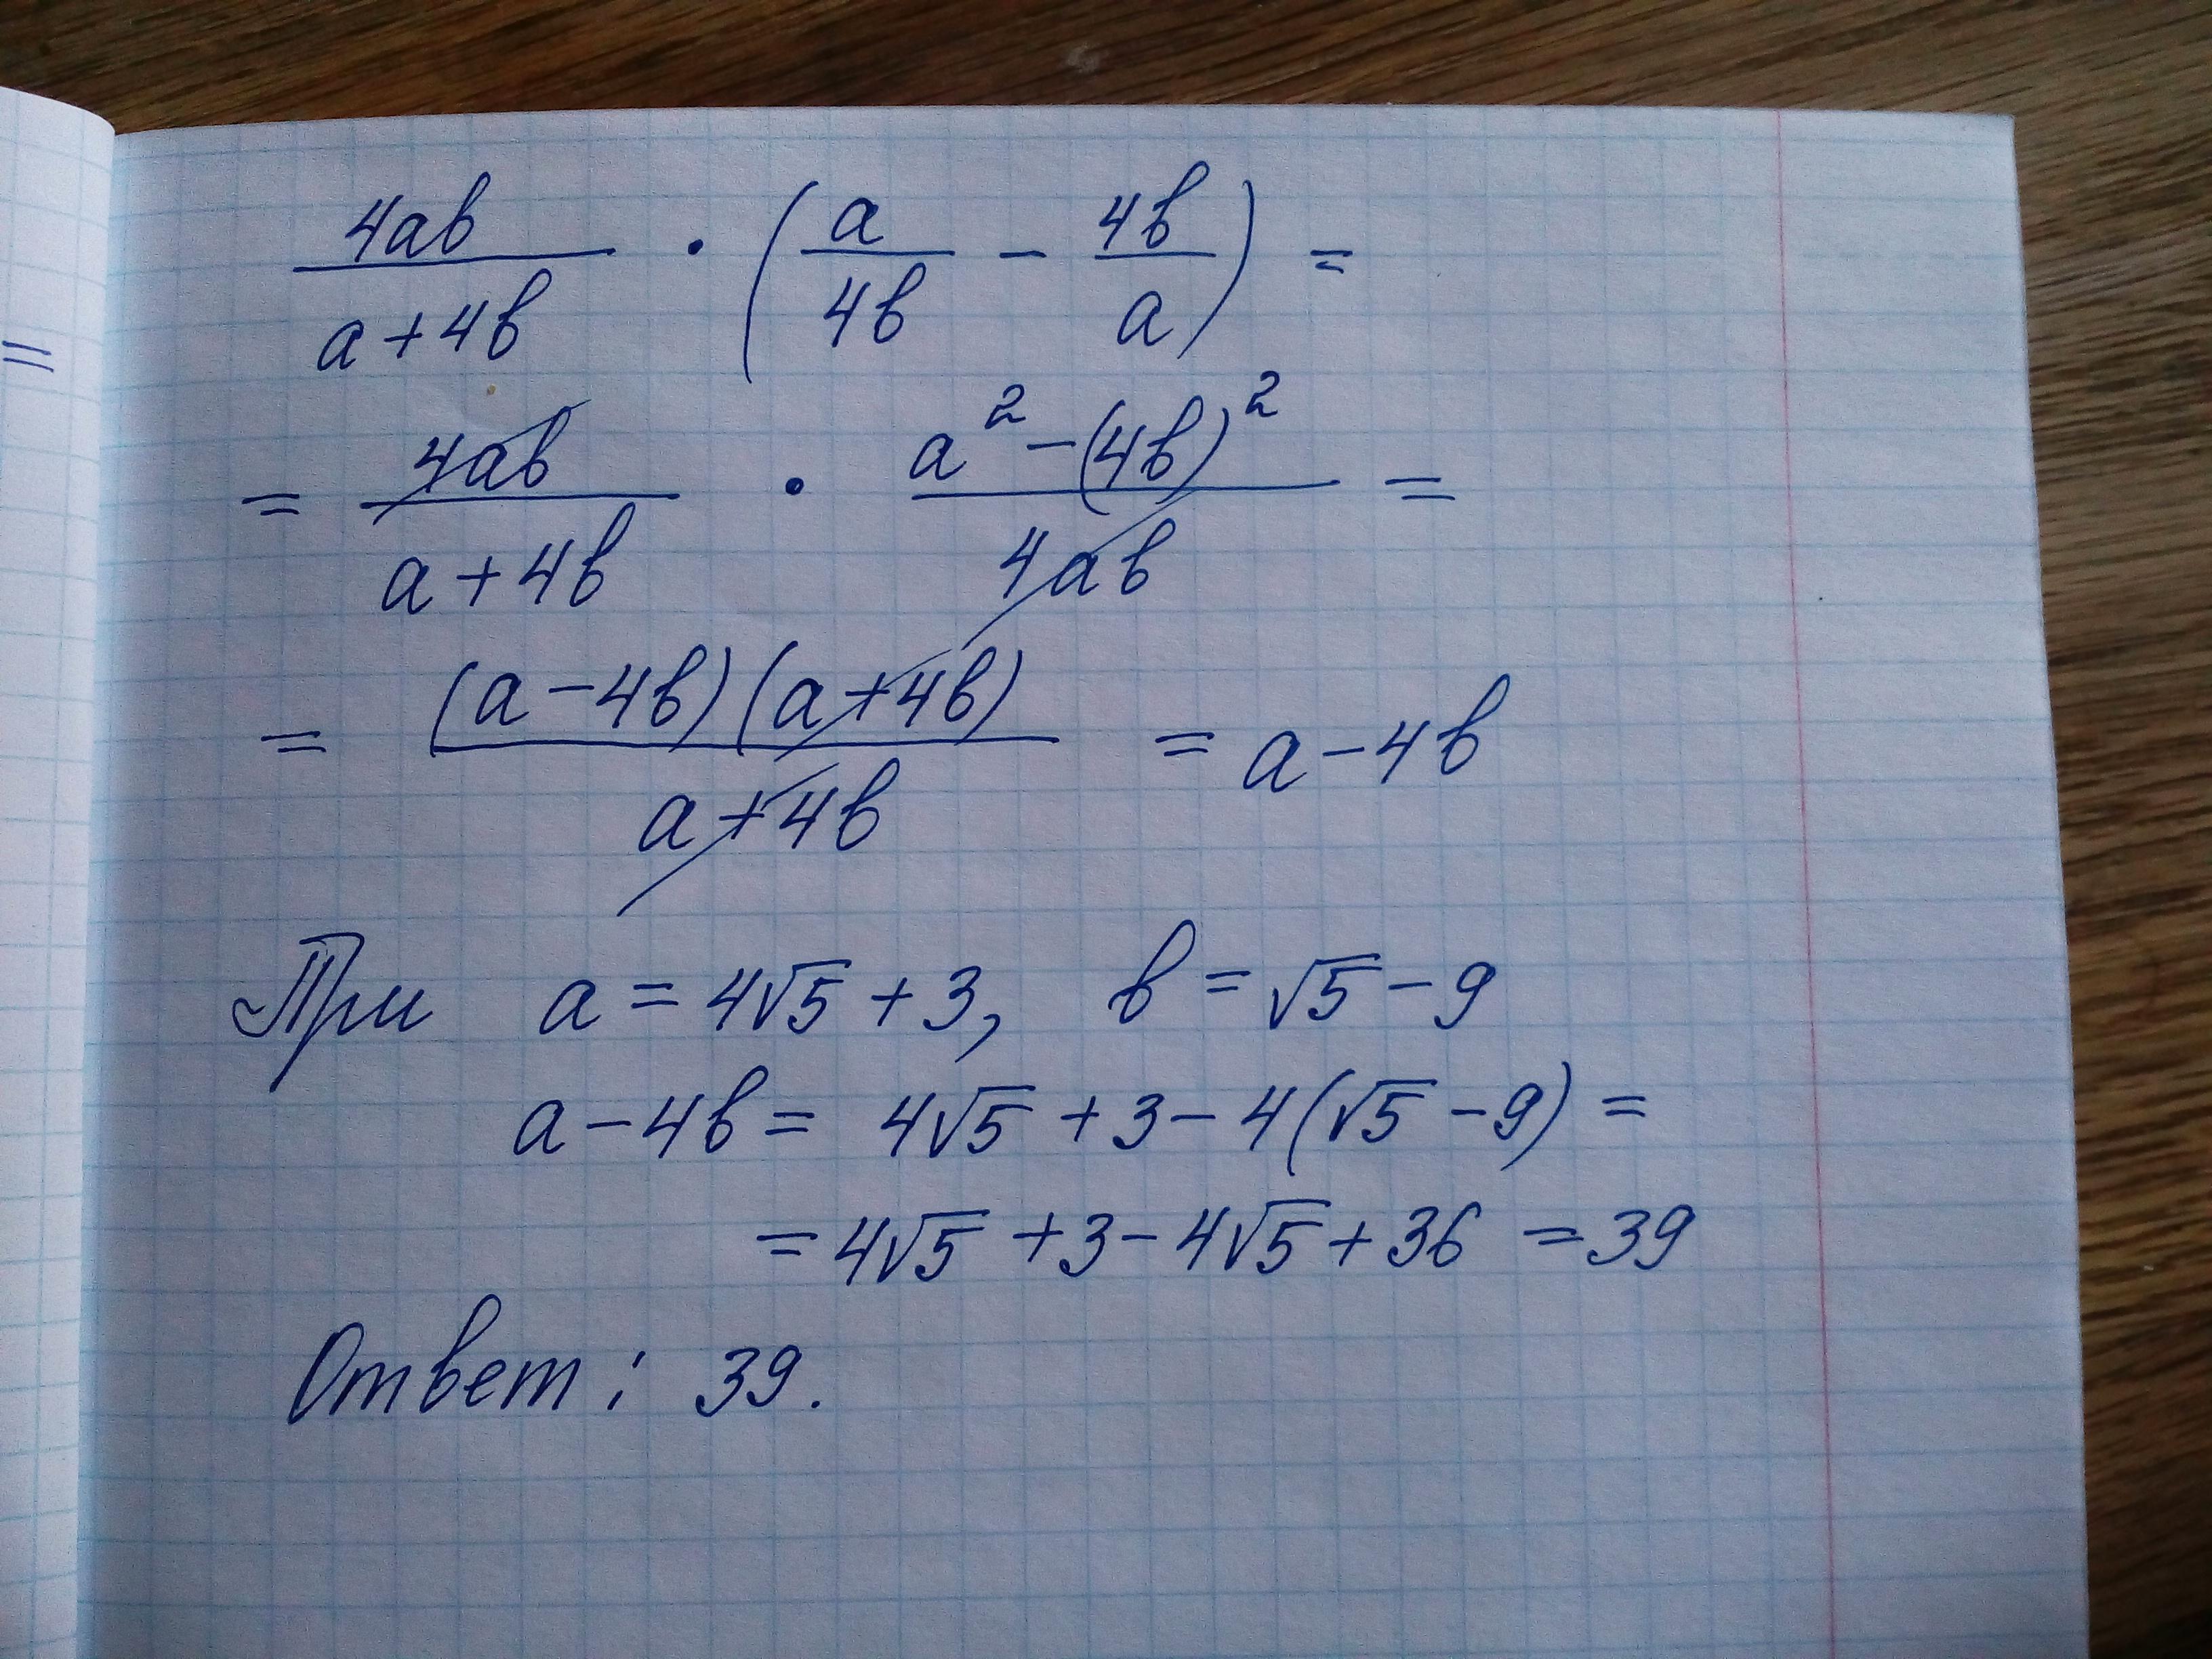 =
4ab/(a+4b) · (a/4b - 4b/a) =
= 4ab/(a+4b) · (a²-(4b)²)/4ab =
= (a-4b)(a+4b)/(a+4b) = a-4b
При a = 4√5 + 3, b = √5 - 9
a - 4b = 4√5 + 3 - 4(√5 - 9) =
= 4√5 + 3 - 4√5 + 36 = 39
Ответ: 39.